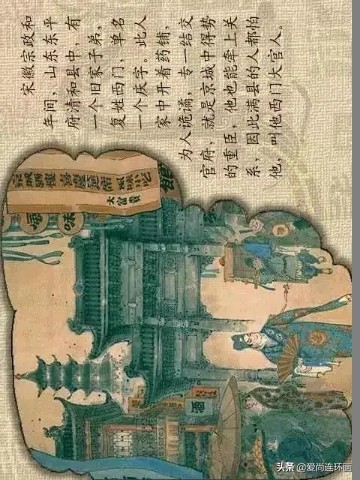 宋徽宗政和
年间，山东东平
府清和县中，有
一个旧家子弟，
复姓西门，单名
一个庆字。此人
家中开着药铺，
为人诡谲，专一结交
官府，就是京城中得势
的重臣，他也能牵上关
系，因此满县的人都怕
他，叫他西门大官人。
風味
酒
头条 @爱尚连环画